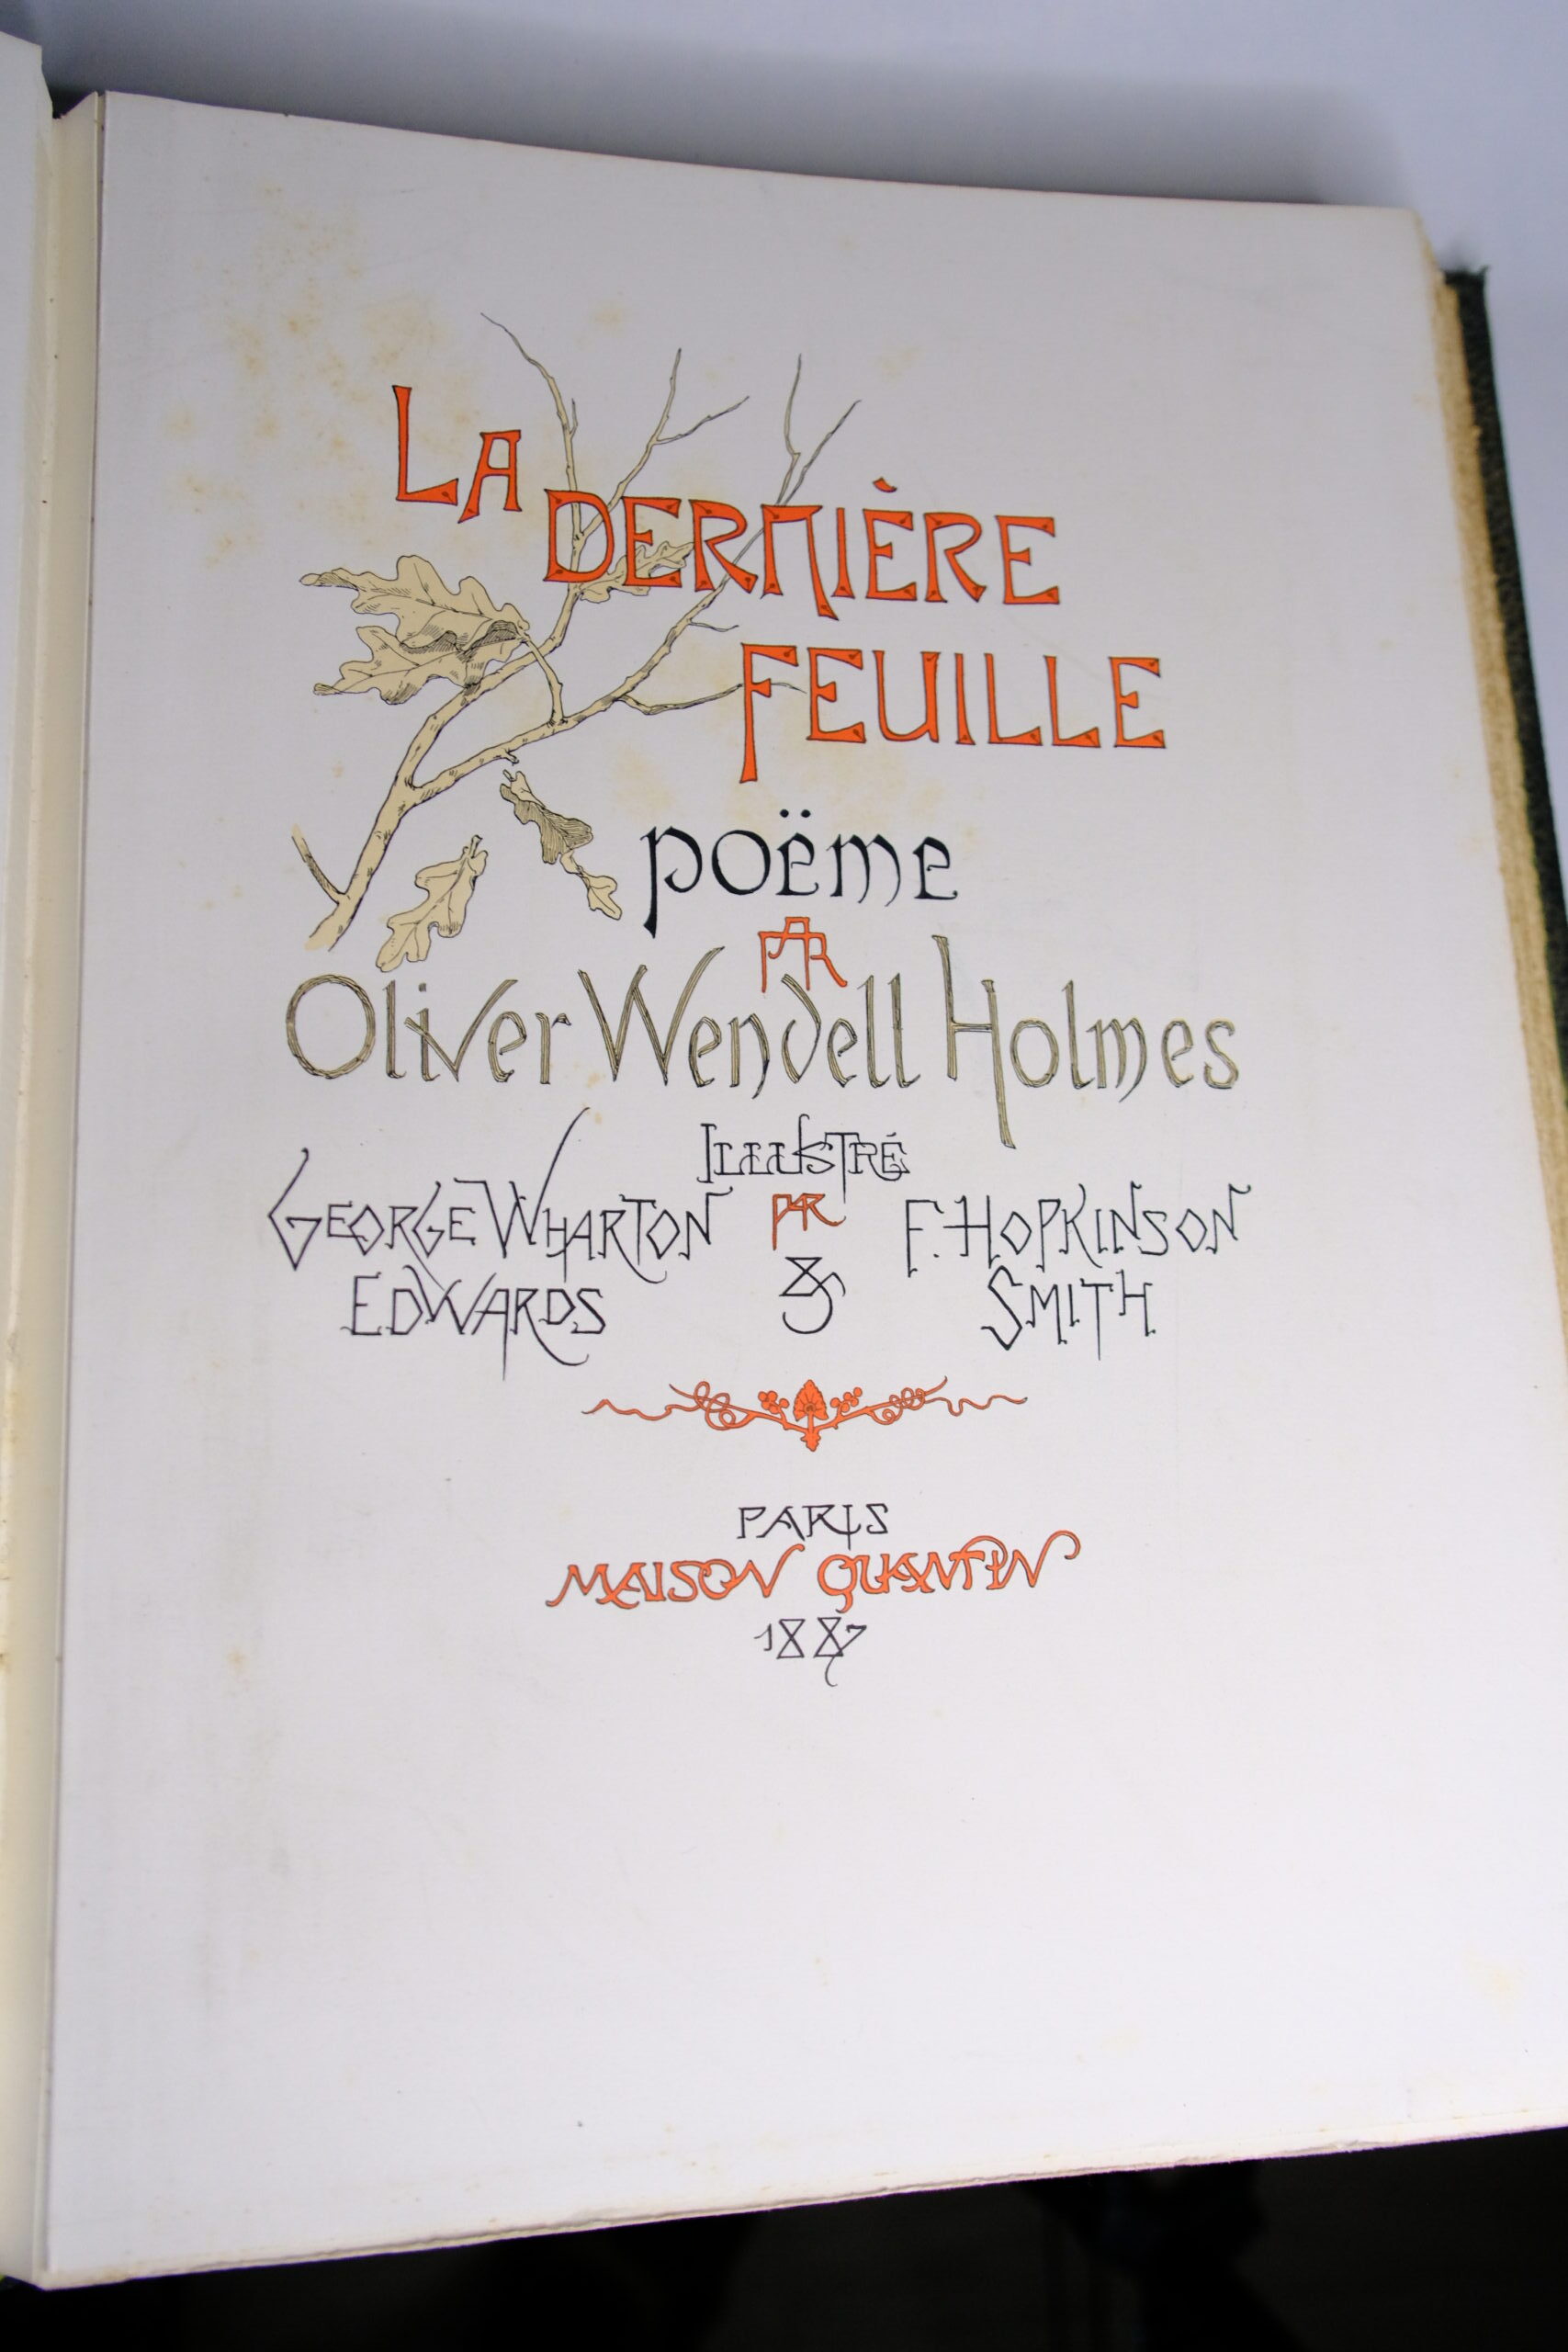 LA
DERNIÈRE
FEUILLE
poëme
PAR
Oliver Wendell Holmes
ILLUSTRÉ
GEORGE WHARTON PAR F. HOPKINSON
EDWARDS & SMITH
PARIS
MAISON QUANTIN
1887